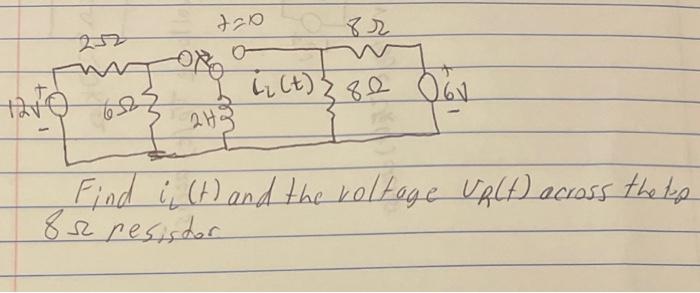 t=0
8Ω
2Ω
12V
+
-
6Ω
2H
i_L(t)
8Ω
+
6V
-
Find i_L(t) and the voltage V_R(t) across the top
8Ω resistor